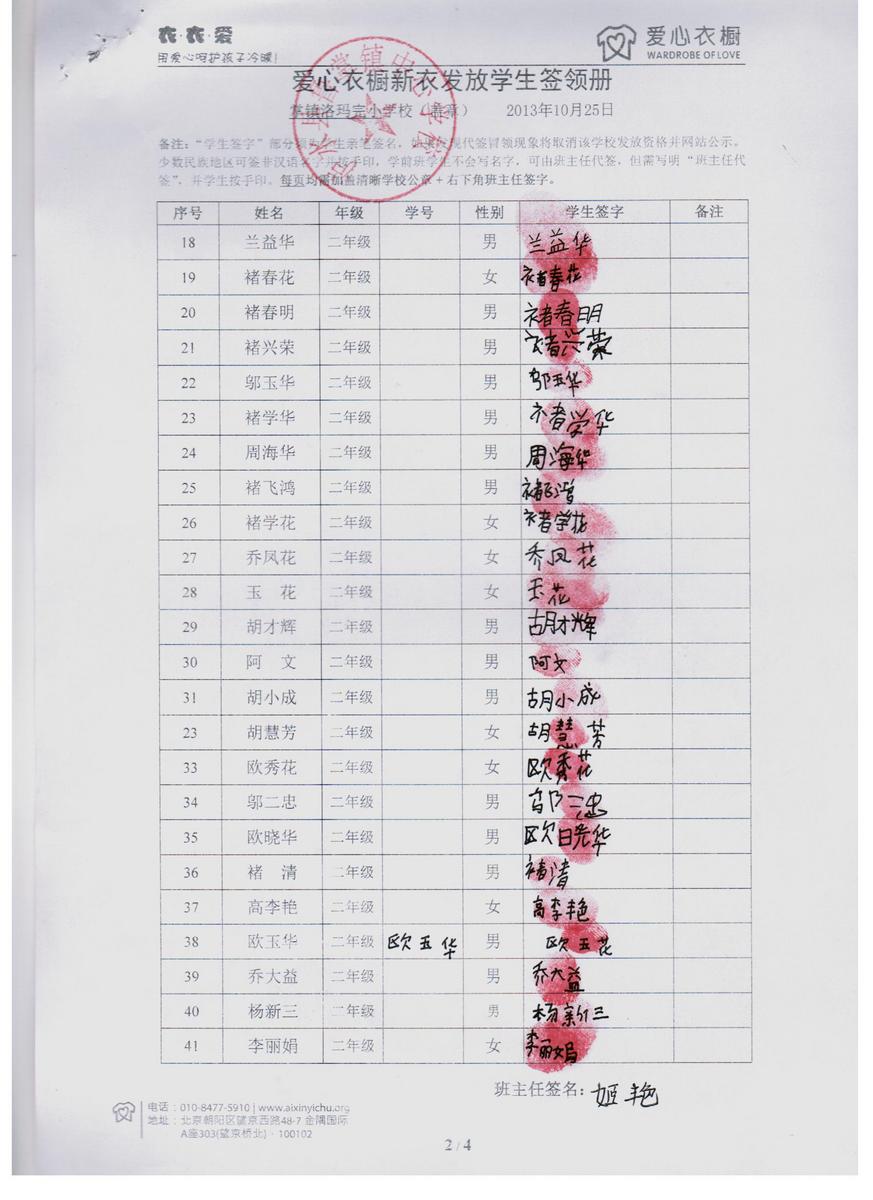 衣·衣·爱
用爱心呵护孩子冷暖!
爱心衣橱
WARDROBE OF LOVE
爱心衣橱新衣发放学生签领册
掌镇洛玛完小学校（盖章） 2013年10月25日
备注：“学生签字”部分须为学生亲笔签名，如果发现代签冒领现象将取消该学校发放资格并网站公示。
少数民族地区可签非汉语名字并按手印，学前班学生不会写名字，可由班主任代签，但需写明“班主任代
签”，并学生按手印。每页均需加盖清晰学校公章+右下角班主任签字。
序号 姓名 年级 学号 性别 学生签字 备注
18 兰益华 二年级 男 兰益华
19 褚春花 二年级 女 褚春花
20 褚春明 二年级 男 褚春明
21 褚兴荣 二年级 男 褚兴荣
22 邬玉华 二年级 男 邬玉华
23 褚学华 二年级 男 褚学华
24 周海华 二年级 男 周海华
25 褚飞鸿 二年级 男 褚飞鸿
26 褚学花 二年级 女 褚学花
27 乔凤花 二年级 女 乔凤花
28 玉 花 二年级 女 玉花
29 胡才辉 二年级 男 胡才辉
30 阿 文 二年级 男 阿文
31 胡小成 二年级 男 胡小成
23 胡慧芳 二年级 女 胡慧芳
33 欧秀花 二年级 女 欧秀花
34 邬二忠 二年级 男 邬二忠
35 欧晓华 二年级 男 欧晓华
36 褚 清 二年级 男 褚清
37 高李艳 二年级 女 高李艳
38 欧玉华 二年级 欧玉华 男 欧玉花
39 乔大益 二年级 男 乔大益
40 杨新三 二年级 男 杨新三
41 李丽娟 二年级 女 李丽娟
班主任签名：姬艳
电话：010-8477-5910 | www.aixinyichu.org
地址：北京朝阳区望京西路48-7 金隅国际
A座303(望京桥北)·100102
2 / 4